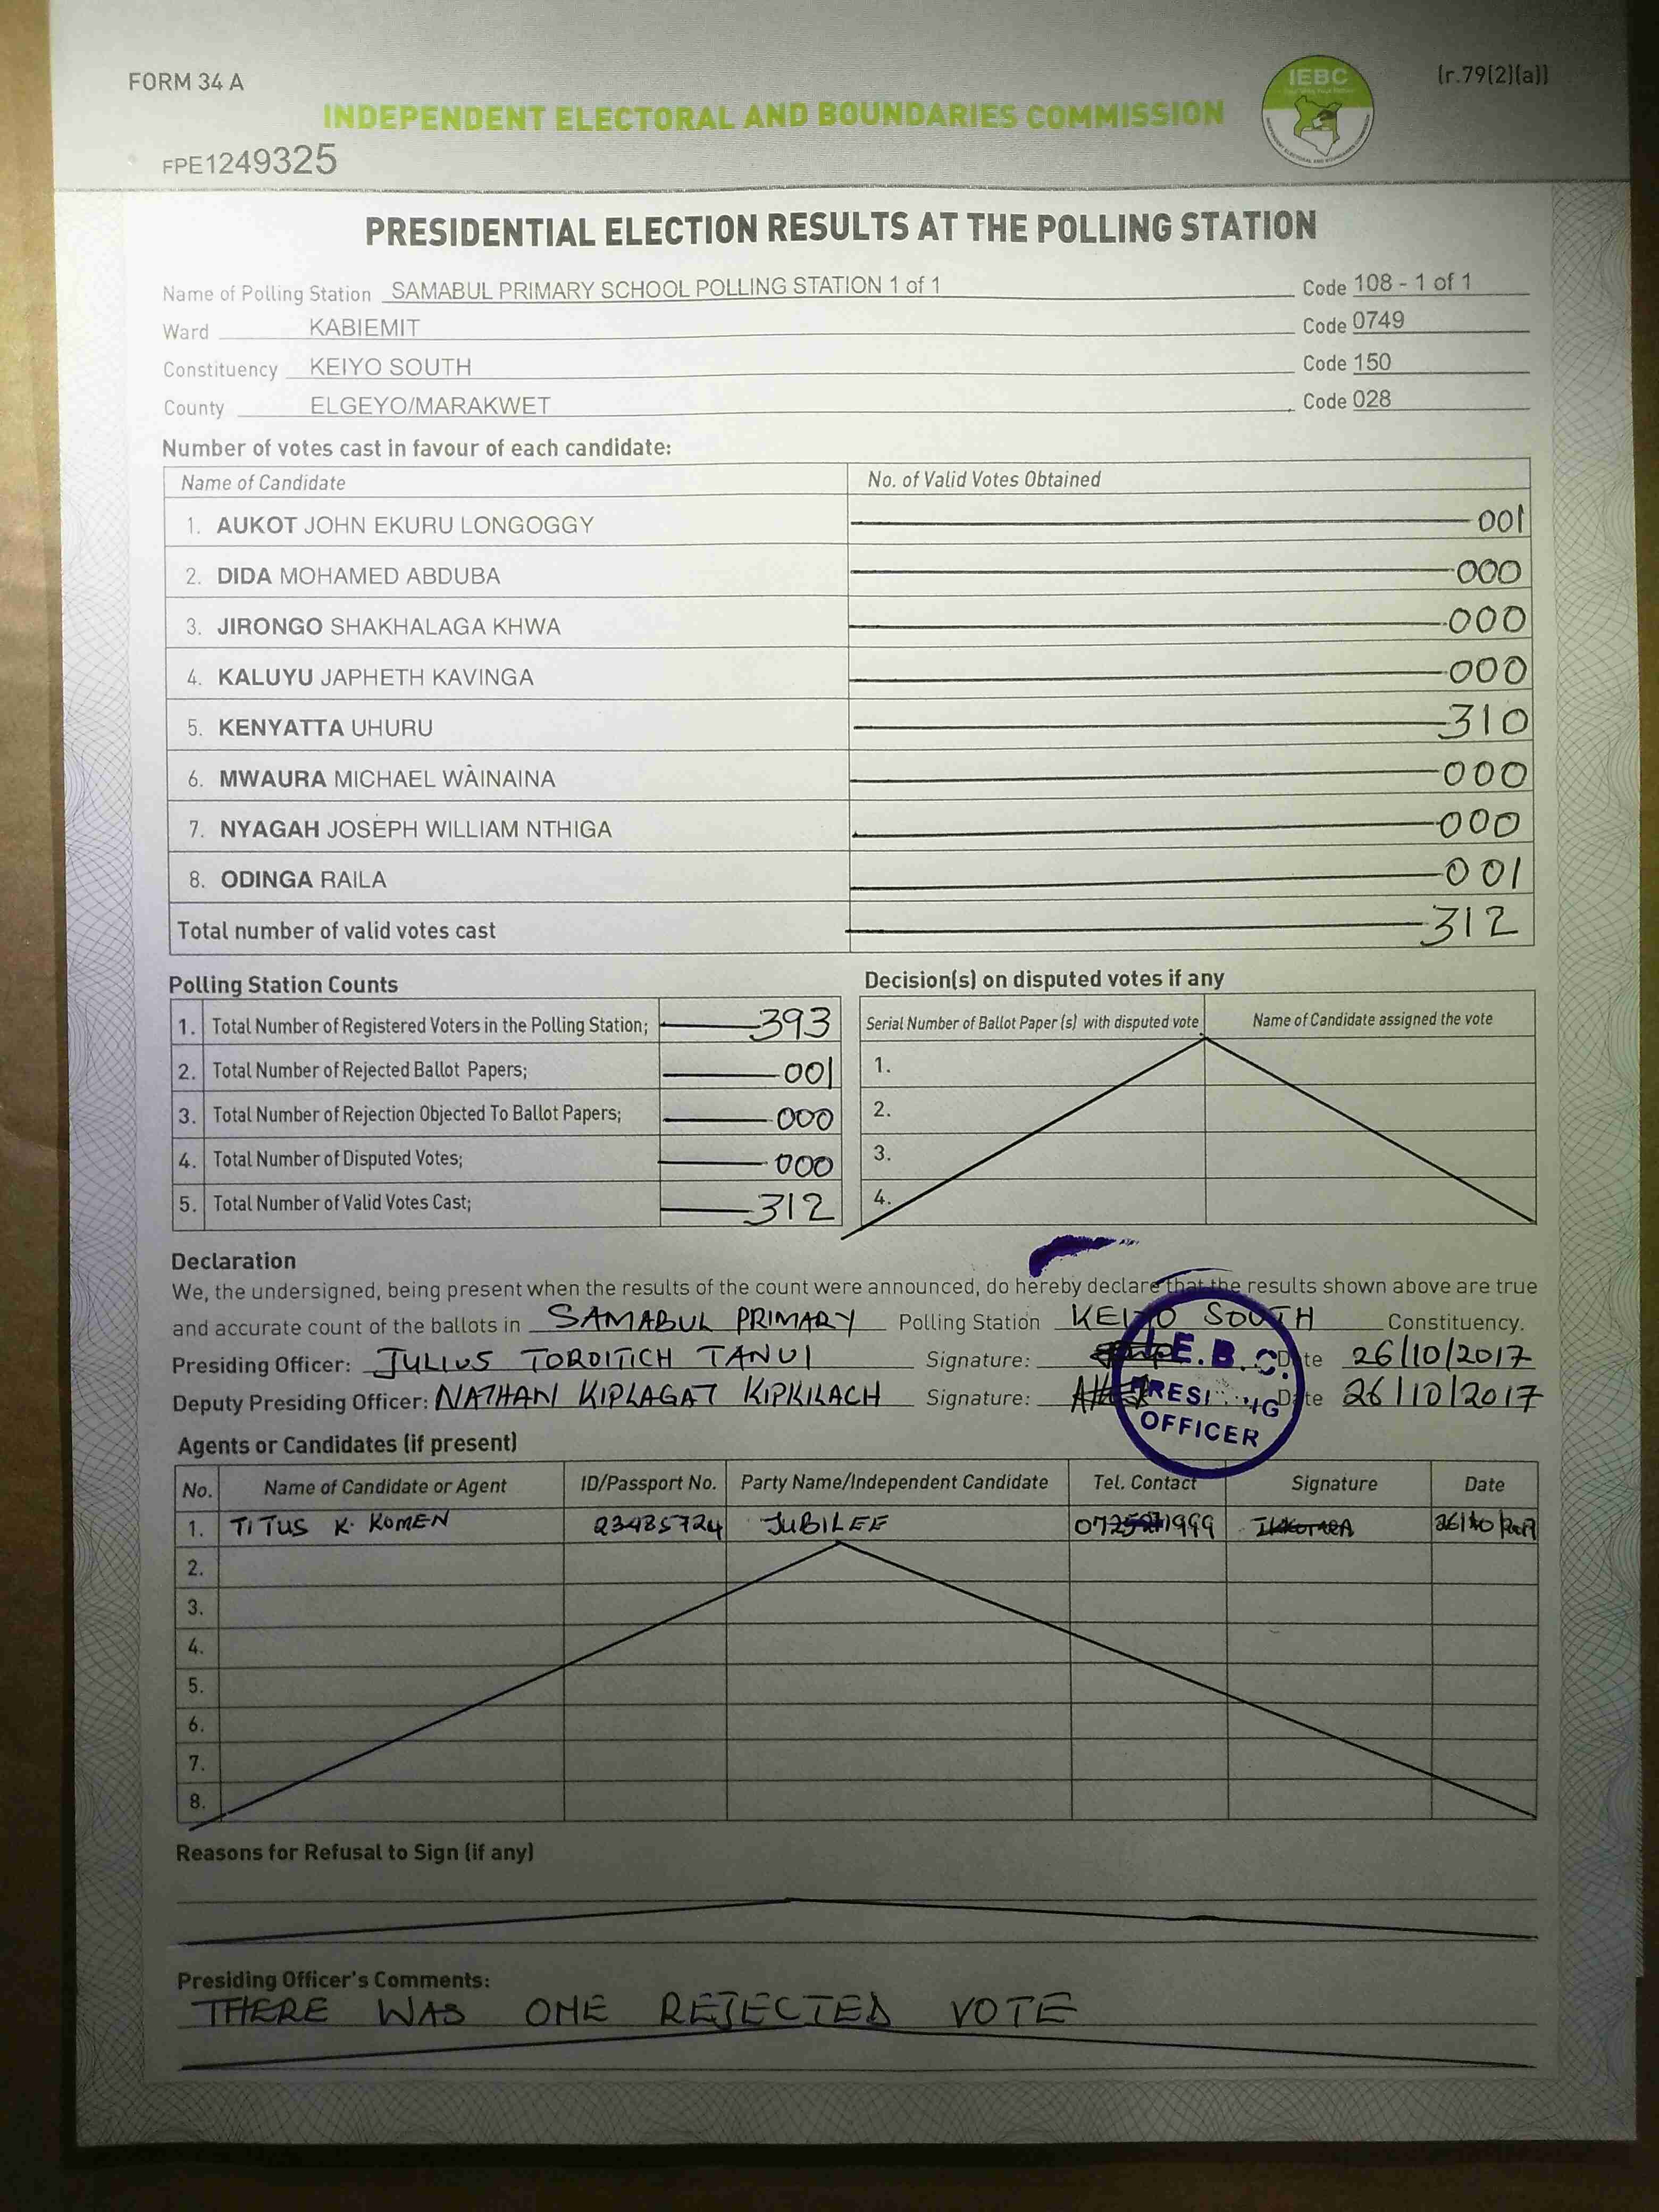 FORM 34 A
(r.79(2)(a))
IEBC
INDEPENDENT ELECTORAL AND BOUNDARIES COMMISSION
FPE1249325
PRESIDENTIAL ELECTION RESULTS AT THE POLLING STATION
Name of Polling Station SAMABUL PRIMARY SCHOOL POLLING STATION 1 of 1 Code 108 - 1 of 1
Ward KABIEMIT Code 0749
Constituency KEIYO SOUTH Code 150
County ELGEYO/MARAKWET Code 028
Number of votes cast in favour of each candidate:
Name of Candidate No. of Valid Votes Obtained
1. AUKOT JOHN EKURU LONGOGGY 001
2. DIDA MOHAMED ABDUBA 000
3. JIRONGO SHAKHALAGA KHWA 000
4. KALUYU JAPHETH KAVINGA 000
5. KENYATTA UHURU 310
6. MWAURA MICHAEL WAINAINA 000
7. NYAGAH JOSEPH WILLIAM NTHIGA 000
8. ODINGA RAILA 001
Total number of valid votes cast 312
Polling Station Counts
1. Total Number of Registered Voters in the Polling Station; 393
2. Total Number of Rejected Ballot Papers; 001
3. Total Number of Rejection Objected To Ballot Papers; 000
4. Total Number of Disputed Votes; 000
5. Total Number of Valid Votes Cast; 312
Decision(s) on disputed votes if any
Serial Number of Ballot Paper (s) with disputed vote Name of Candidate assigned the vote
1.
2.
3.
4.
Declaration
We, the undersigned, being present when the results of the count were announced, do hereby declare that the results shown above are true
and accurate count of the ballots in SAMABUL PRIMARY Polling Station KEIYO SOUTH Constituency.
Presiding Officer: JULIUS TOROITICH TANUI Signature: Date 26/10/2017
Deputy Presiding Officer: NATHAN KIPLAGAT KIPKILACH Signature: Date 26/10/2017
I.E.B.C.
PRESIDING
OFFICER
Agents or Candidates (if present)
No. Name of Candidate or Agent ID/Passport No. Party Name/Independent Candidate Tel. Contact Signature Date
1. TITUS K. KOMEN 23485724 JUBILEE 26/10/2017
2.
3.
4.
5.
6.
7.
8.
Reasons for Refusal to Sign (if any)
Presiding Officer's Comments:
THERE WAS ONE REJECTED VOTE